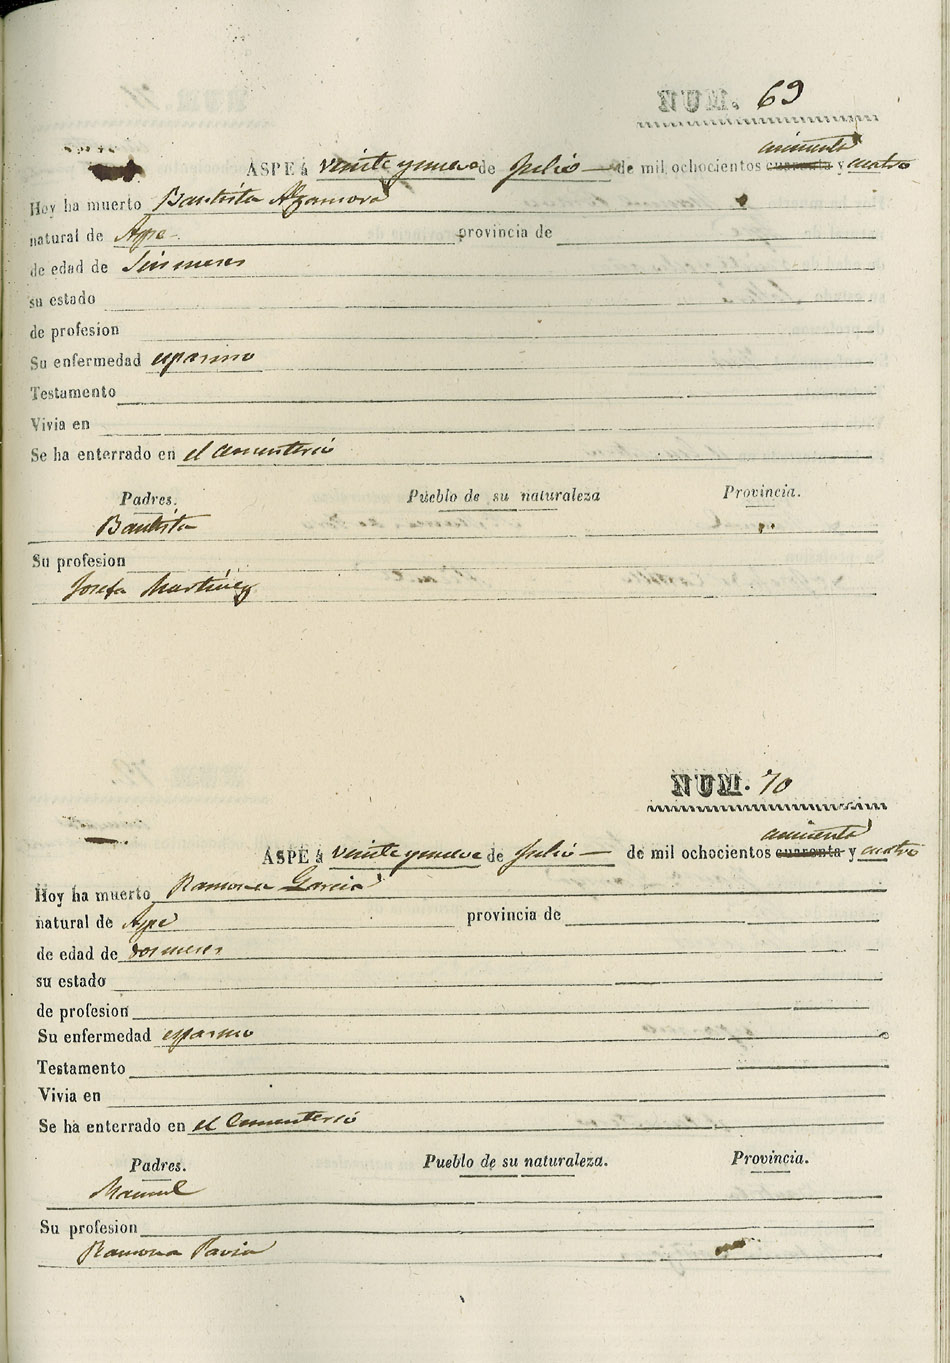 NUM. 69
cincuenta
ASPE á veinte y nueve de Julio de mil ochocientos cuarenta y cuatro
Hoy ha muerto Bautista Alzamora
natural de Aspe provincia de
de edad de Seis meses
su estado
de profesion
Su enfermedad espasmo
Testamento
Vivia en
Se ha enterrado en el Cementerio
Padres. Pueblo de su naturaleza Provincia.
Bautista
Su profesion
Josefa Martinez
NUM. 70
cincuenta
ASPE á veinte y nueve de Julio de mil ochocientos cuarenta y cuatro
Hoy ha muerto Ramona Garcia
natural de Aspe provincia de
de edad de dos meses
su estado
de profesion
Su enfermedad espasmo
Testamento
Vivia en
Se ha enterrado en el Cementerio
Padres. Pueblo de su naturaleza. Provincia.
Manuel
Su profesion
Ramona Pavia